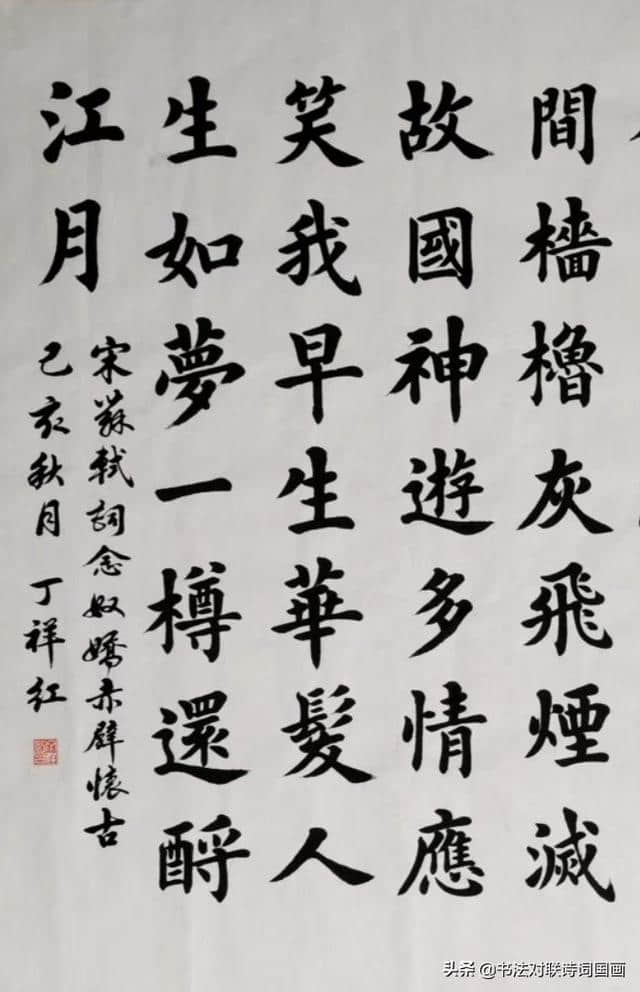 間檣櫓灰飛煙滅
故國神遊多情應
笑我早生華髮人
生如夢一樽還酹
江月
宋蘇軾詞念奴嬌赤壁懷古
己亥秋月 丁祥红
头条 @书法对联诗词国画